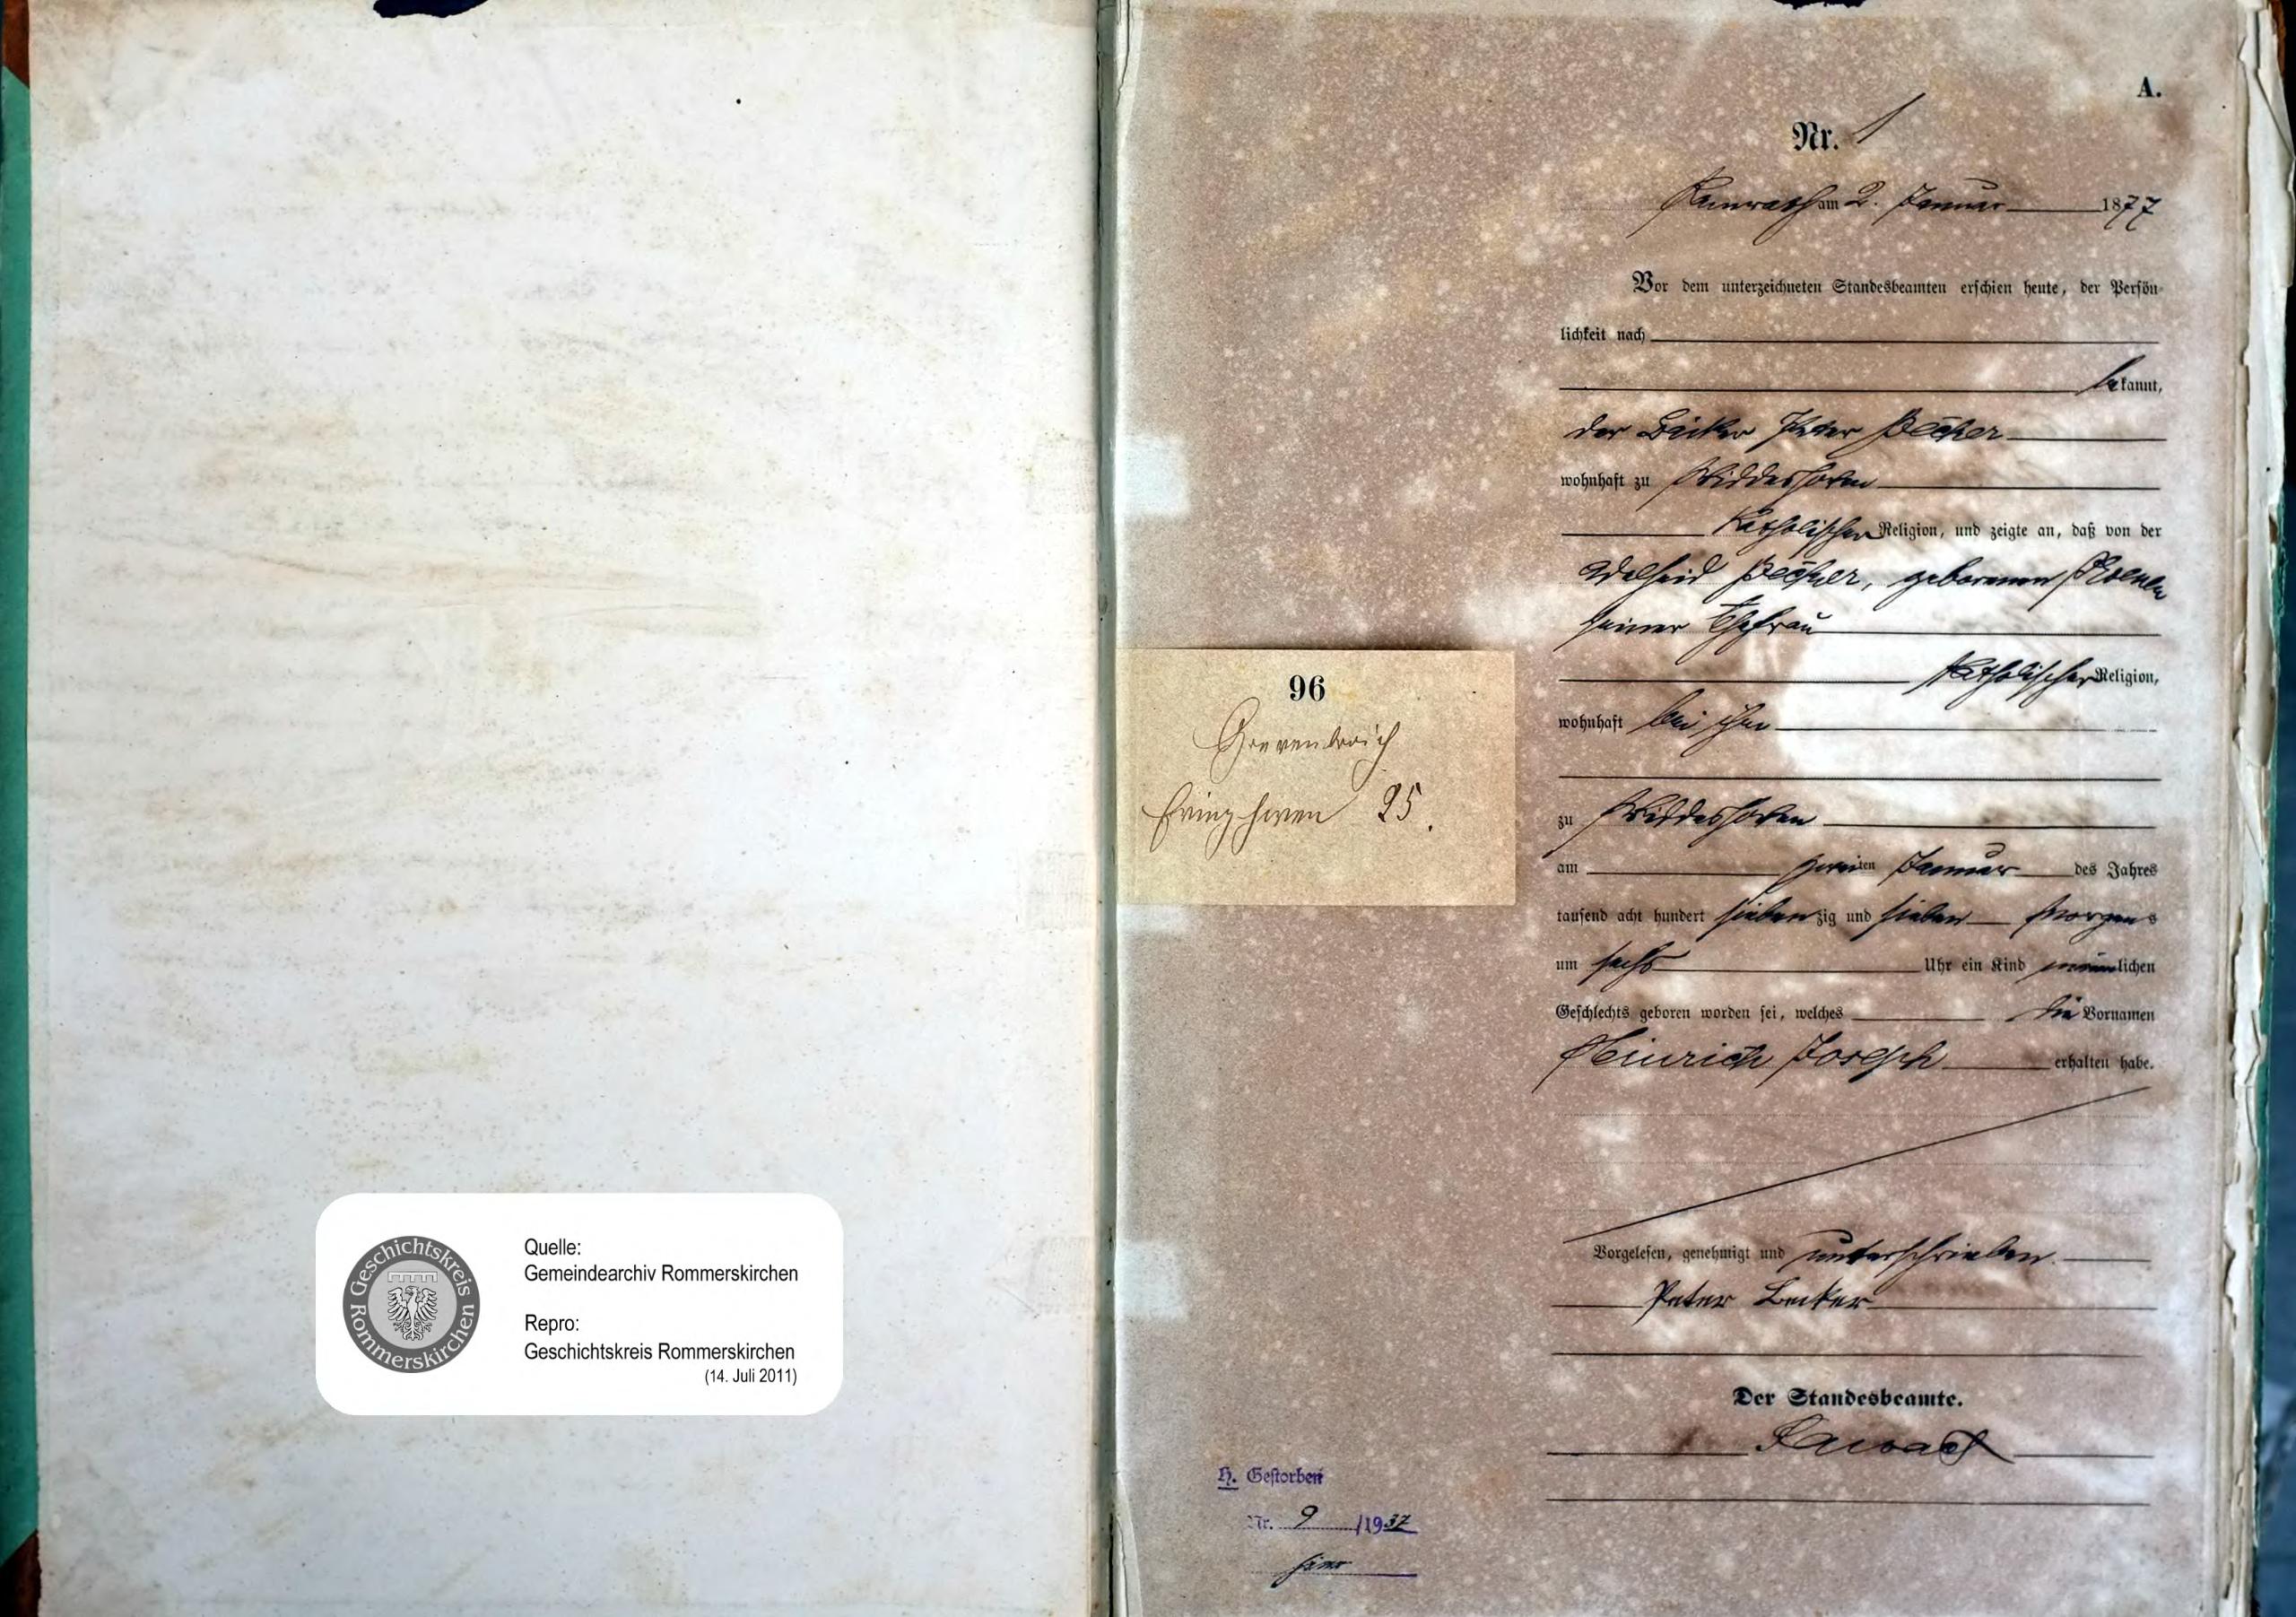 Geschichtskreis Rommerskirchen
Quelle:
Gemeindearchiv Rommerskirchen
Repro:
Geschichtskreis Rommerskirchen
(14. Juli 2011)
96
Grevenbroich
Evinghoven 25.
A.
Nr. 1
am 2. Januar 1877
Vor dem unterzeichneten Standesbeamten erschien heute, der Persön-
lichkeit nach
bekannt,
der Peter Becker
wohnhaft zu Widdeshoven
katholischer Religion, und zeigte an, daß von der
Adelheid Becker, geborenen
seiner Ehefrau
katholischer Religion,
wohnhaft bei ihm
zu Widdeshoven
am zweiten Januar des Jahres
tausend acht hundert siebenzig und sieben Morgens
um sechs Uhr ein Kind männlichen
Geschlechts geboren worden sei, welches die Vornamen
Heinrich Joseph erhalten habe.
Vorgelesen, genehmigt und unterschrieben.
Peter Becker
Der Standesbeamte.
H. Gestorben
Nr. 9 /1937
hier